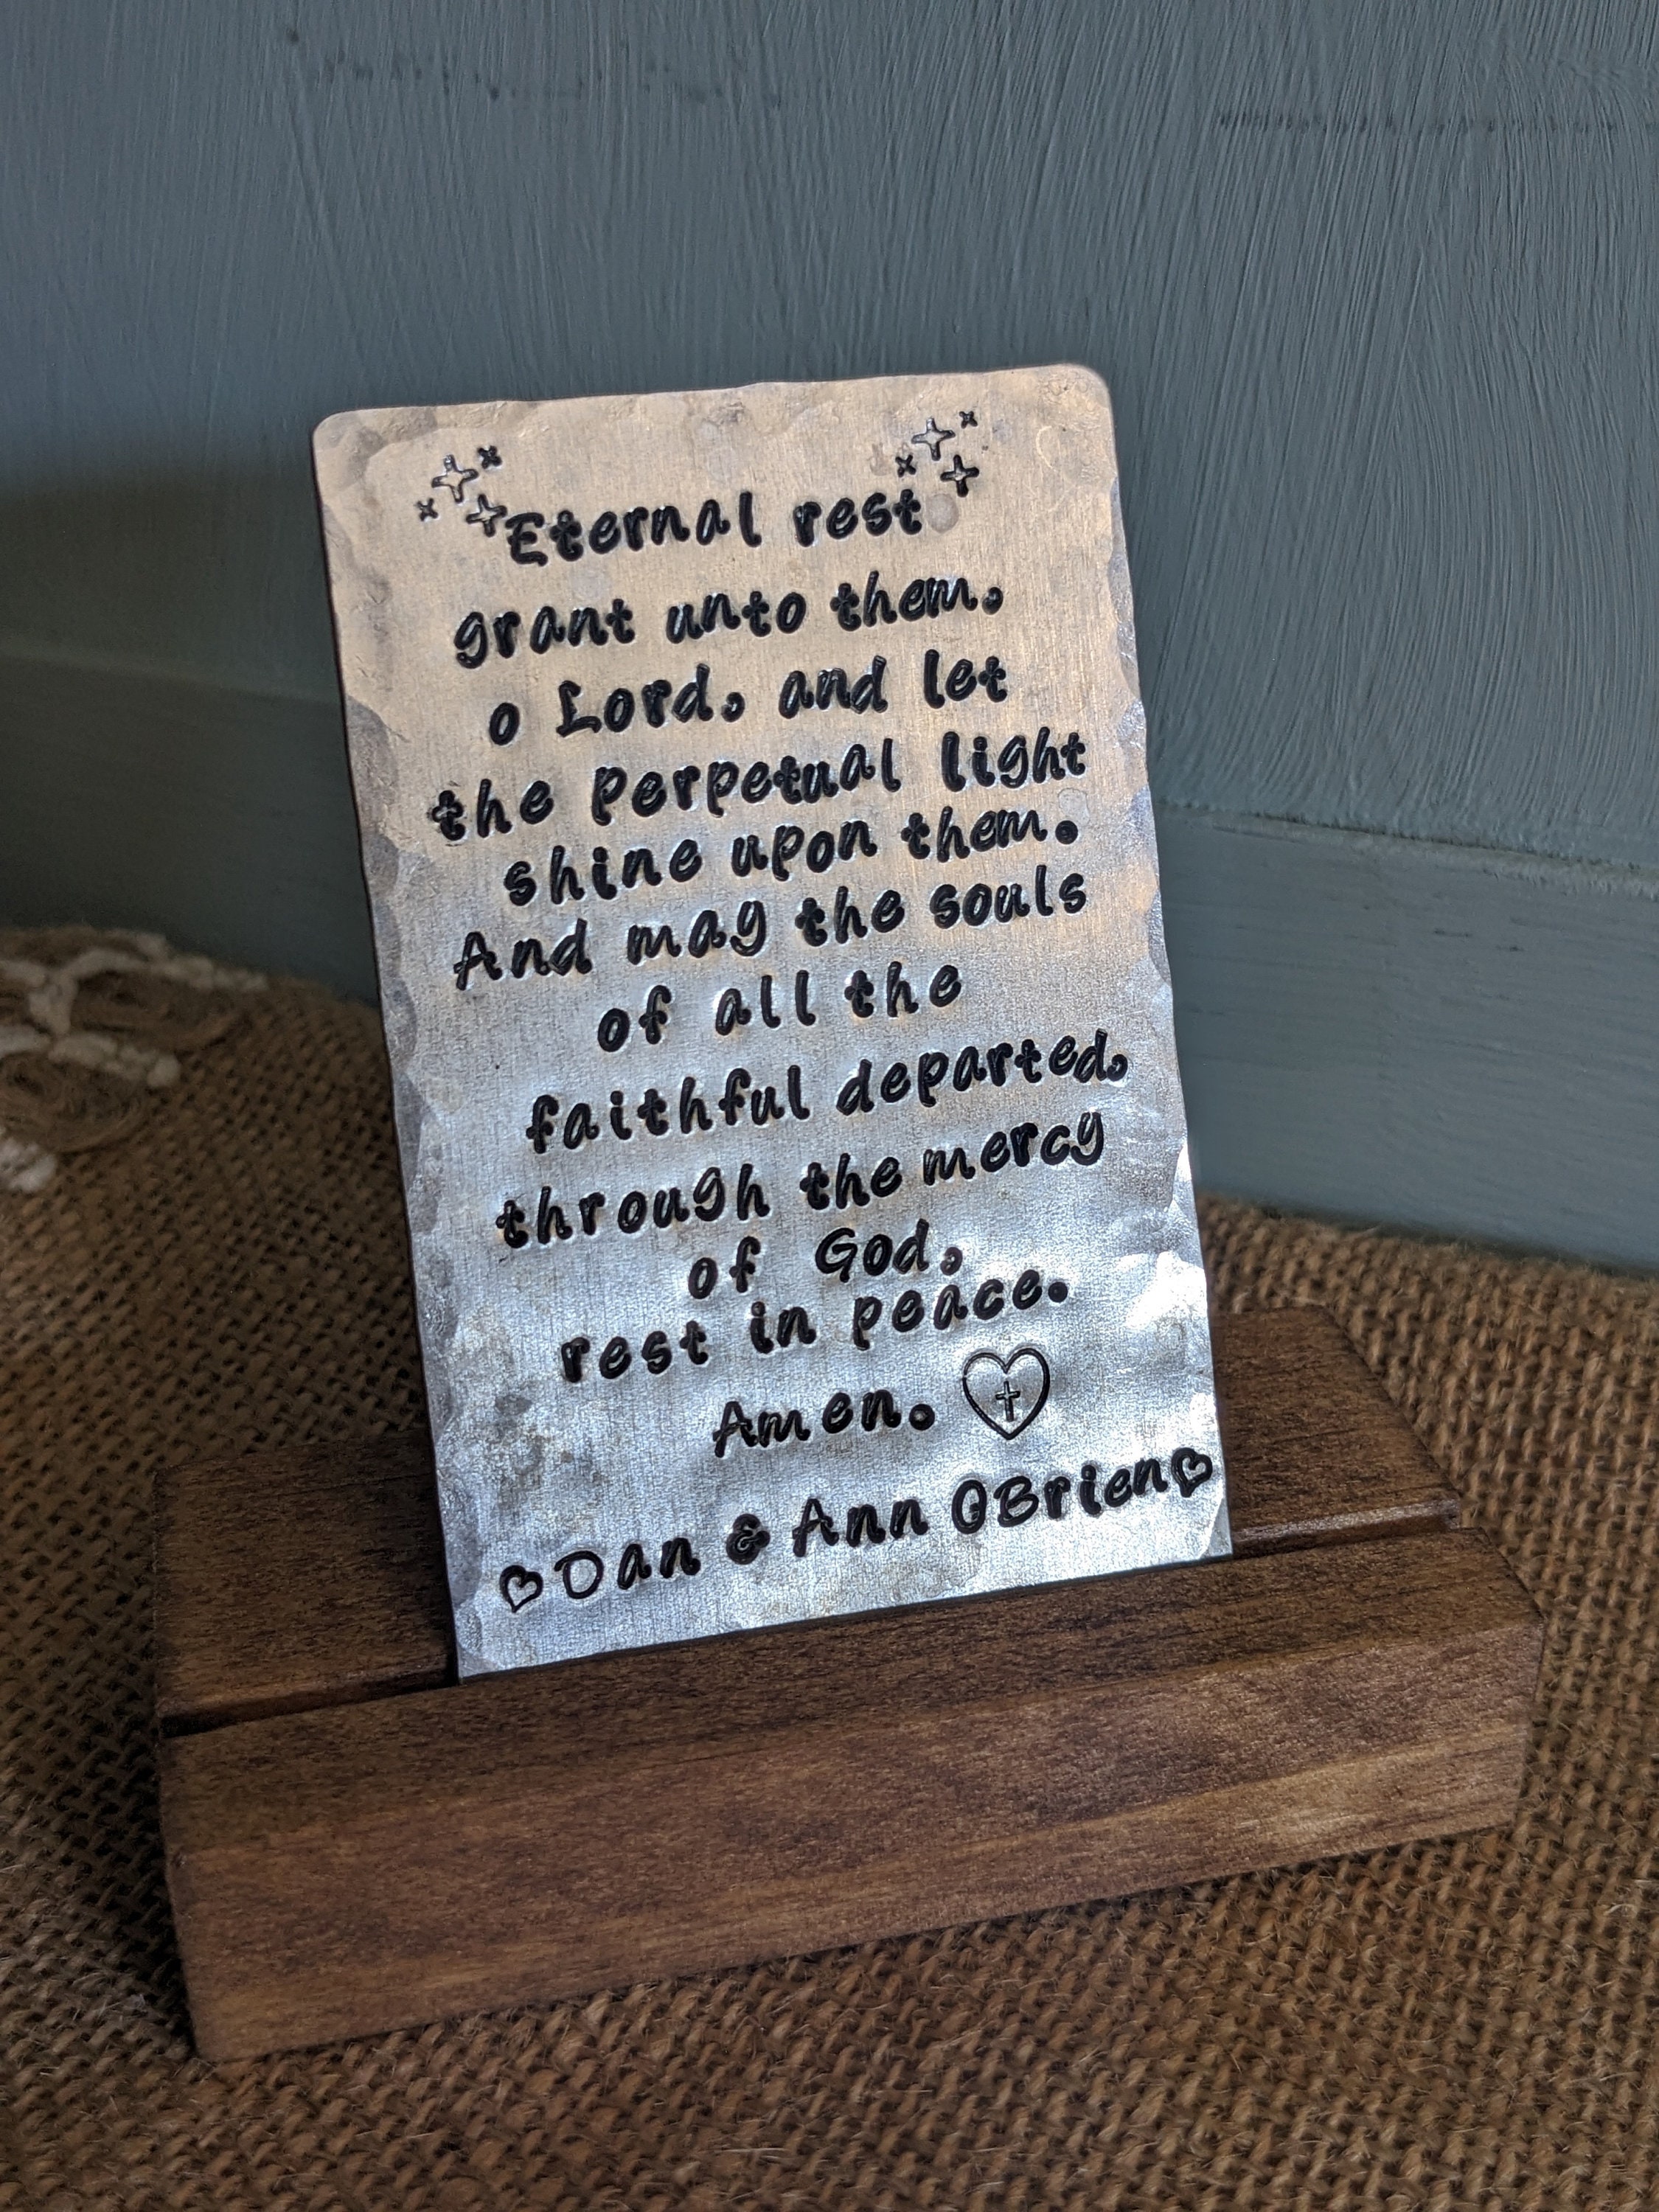 Eternal rest
grant unto them,
o Lord, and let
the perpetual light
shine upon them.
And may the souls
of all the
faithful departed,
through the mercy
of God,
rest in peace.
Amen.
Dan & Ann OBrien